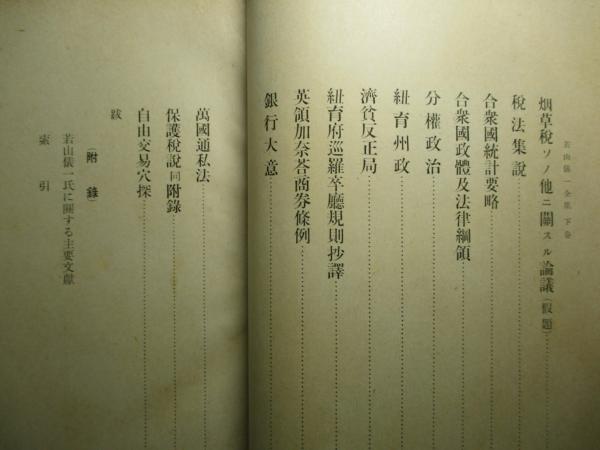 若山儀一全集 下卷
烟草稅ソノ他ニ關スル論議(假題)
稅法集說
合衆國統計要略
合衆國政體及法律綱領
分權政治
紐育州政
濟貧反正局
紐育府巡羅卒廳規則抄譯
英領加奈荅商券條例
銀行大意
萬國通私法
保護稅說同附錄
自由交易穴探
跋
(附錄)
若山儀一氏に關する主要文獻
索引